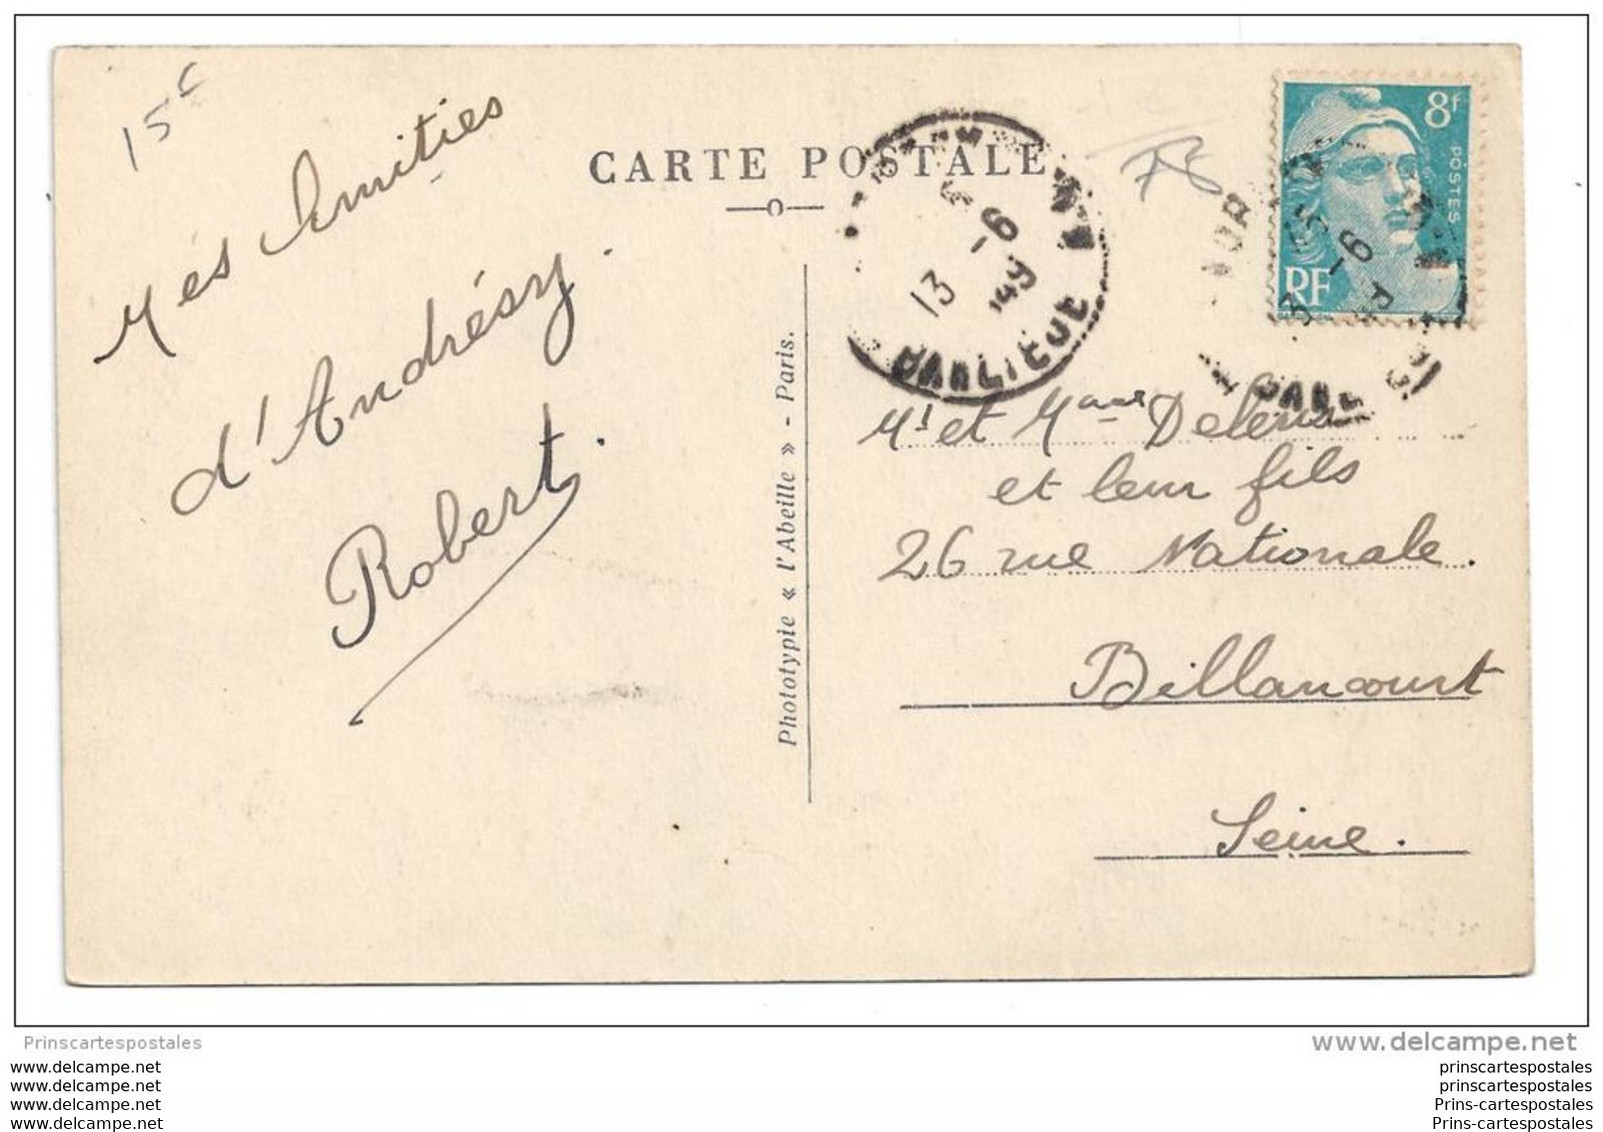 15c
Mes Amitiés
d'Andrésy.
Robert.
CARTE POSTALE
Phototypie « l'Abeille » - Paris.
13 - 6
49
BANLIEUE
8F
POSTES
RF
Mr et Mme
et leur fils
26 rue Nationale.
Billancourt
Seine.
Prinscartespostales
www.delcampe.net
www.delcampe.net
www.delcampe.net
www.delcampe.net
www.delcampe.net
prinscartespostales
prinscartespostales
Prins-cartespostales
Prins-cartespostales